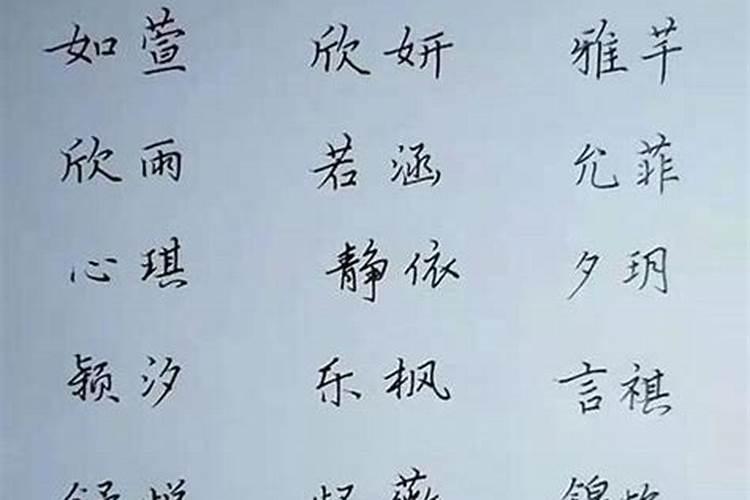 如萱 欣妍 雅芊
欣雨 若涵 允菲
心琪 静依 夕玥
颖汐 乐枫 言祺